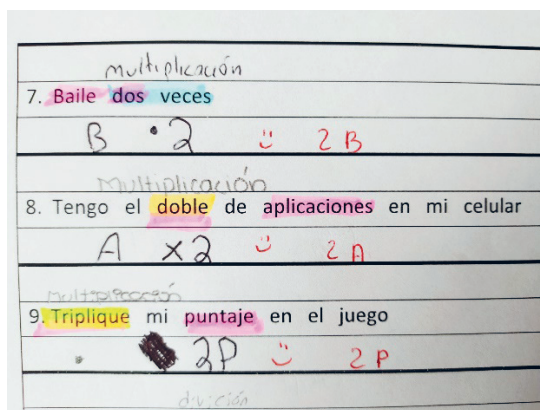 multiplicación
7. Baile dos veces
B • 2 2B
Multiplicación
8. Tengo el doble de aplicaciones en mi celular
A x2 2A
multiplicación
9. Triplique mi puntaje en el juego
2P 2P
divición